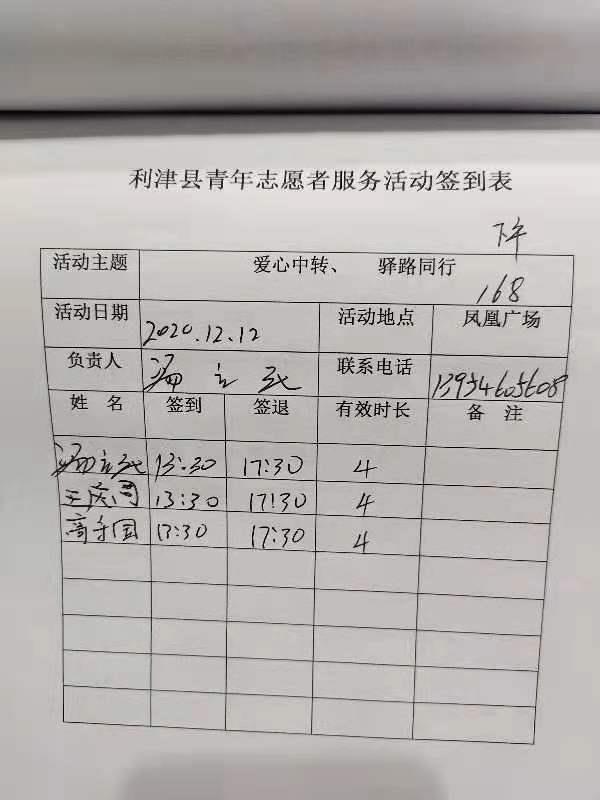 利津县青年志愿者服务活动签到表
下午
活动主题 爱心中转、 驿路同行
168
活动日期 2020.12.12 活动地点 凤凰广场
负责人 联系电话 13954605608
姓名 签到 签退 有效时长 备注
13:30 17:30 4
王庆同 13:30 17:30 4
13:30 17:30 4